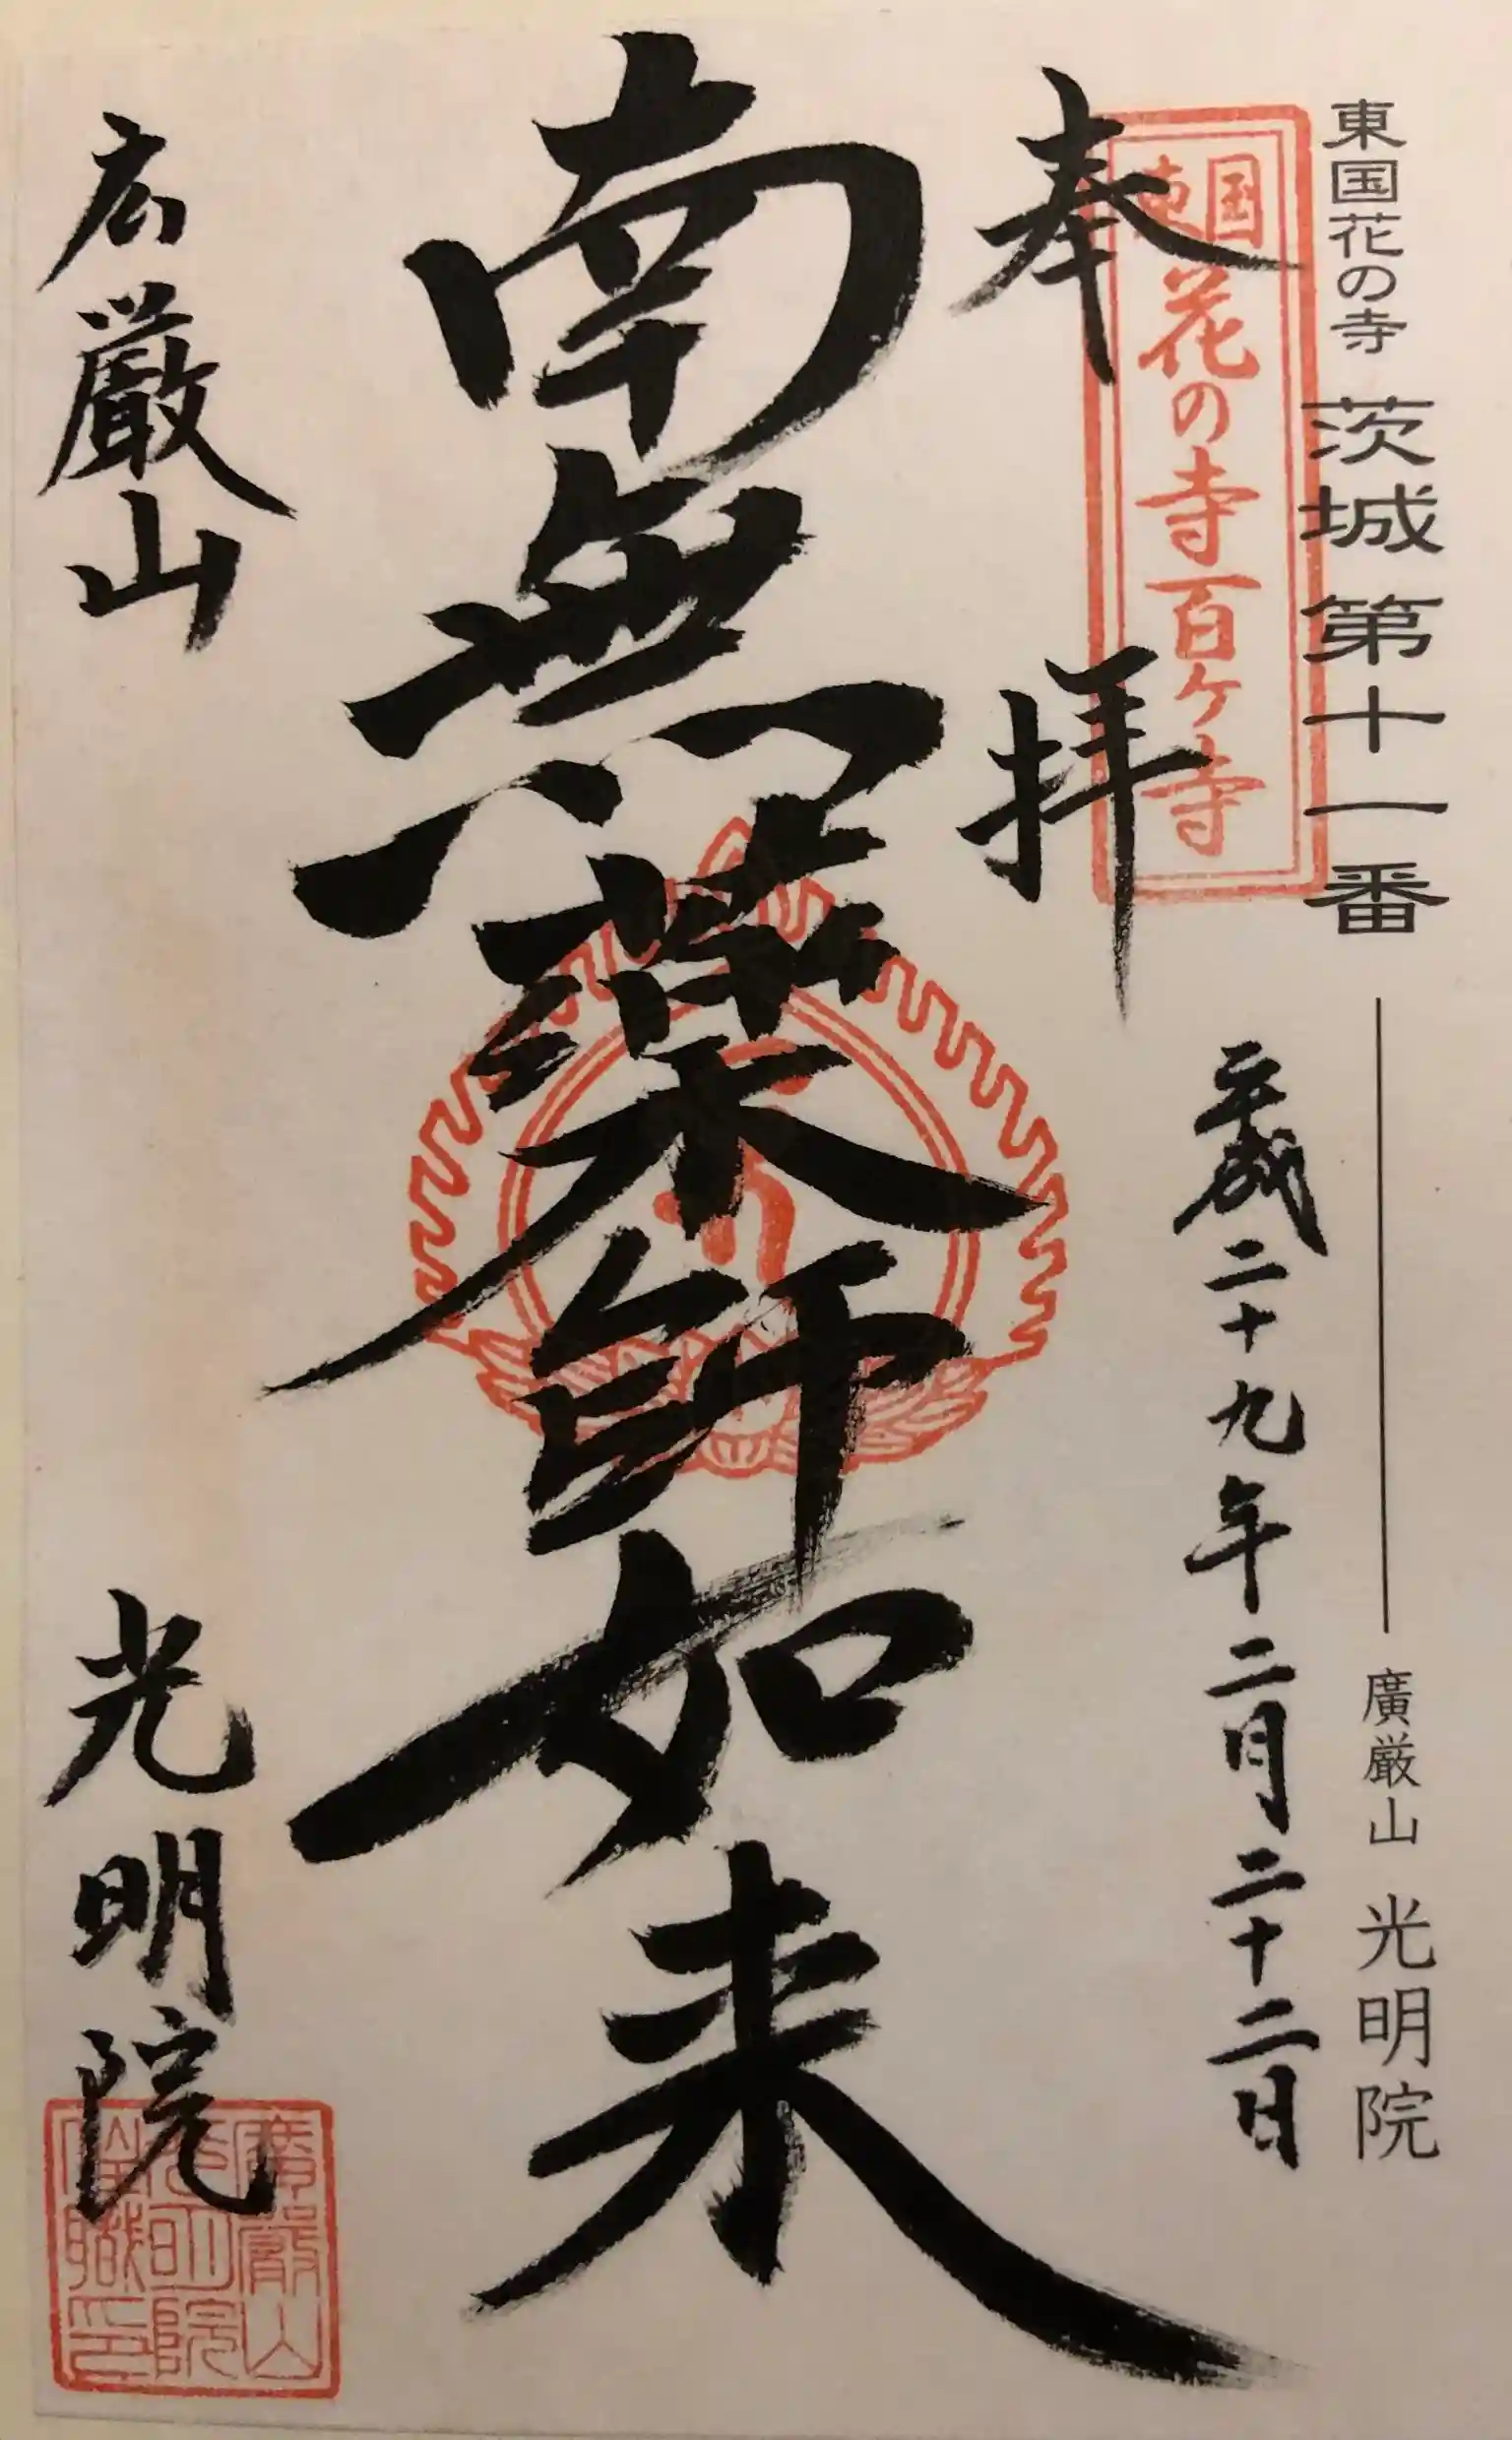 東国花の寺 茨城第十一番 廣厳山 光明院
東国花の寺百ヶ寺
奉拝 平成二十九年二月二十二日
南無薬師如来
広厳山 光明院
廣嚴山
光明院
住職印